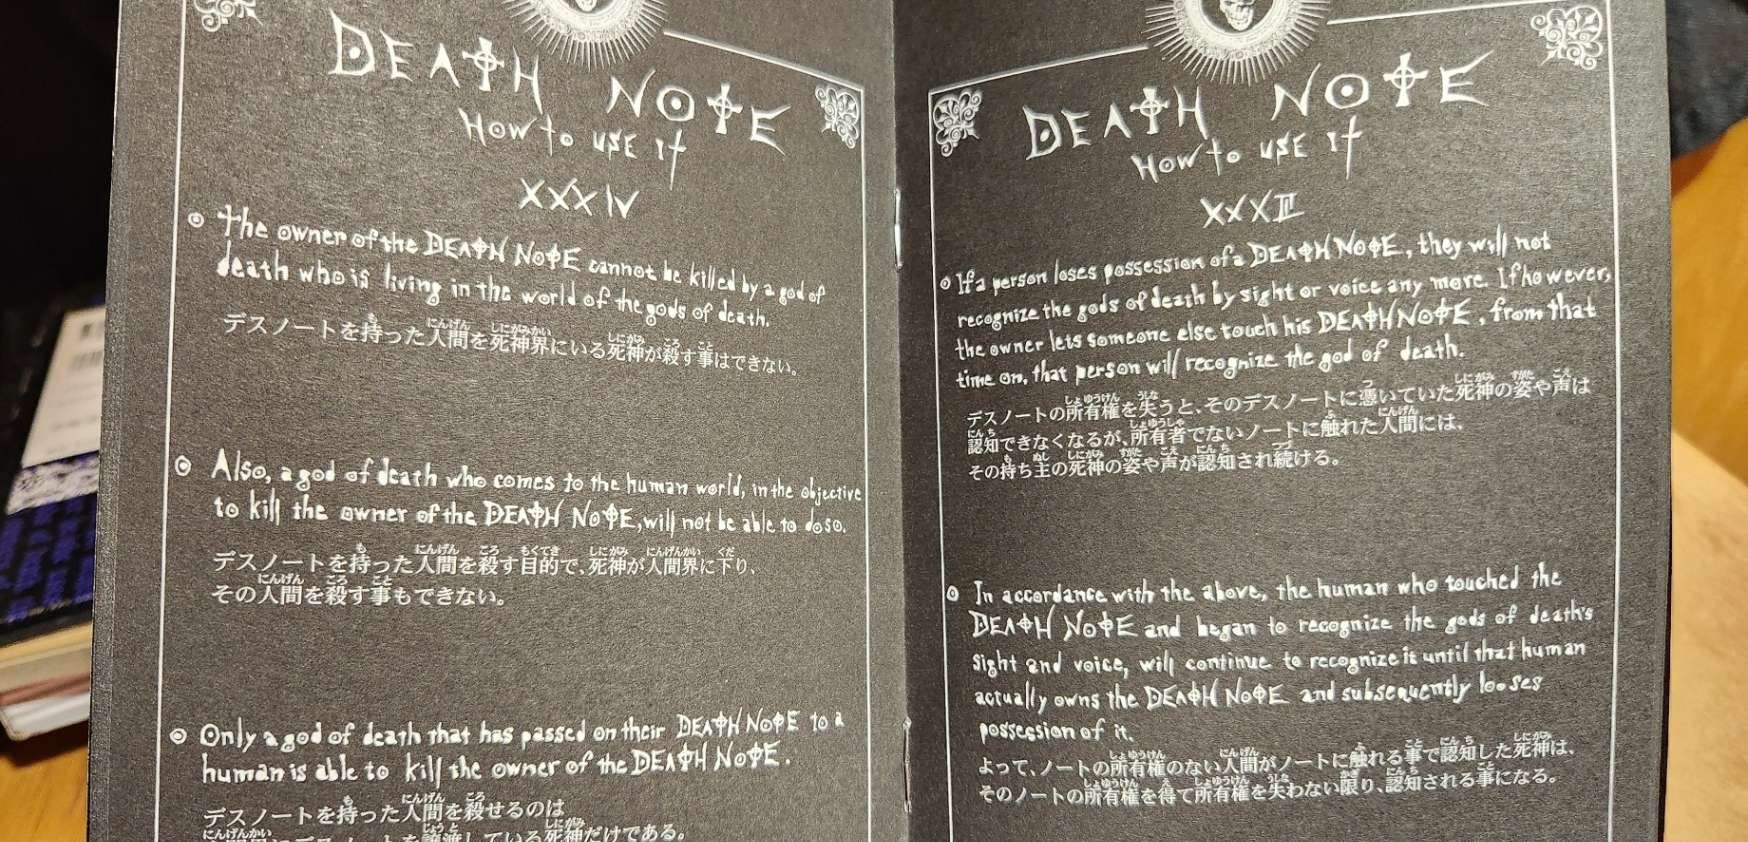 DEATH NOTE
HOW to USE It
XXXIV
The owner of the DEATH NOTE cannot be killed by a god of
death who is living in the world of the gods of death.
デスノートを持った人間を死神界にいる死神が殺す事はできない。
Also, a god of death who comes to the human world, in the objective
to kill the owner of the DEATH NOTE, will not be able to do so.
デスノートを持った人間を殺す目的で、死神が人間界に下り、
その人間を殺す事もできない。
Only a god of death that has passed on their DEATH NOTE to a
human is able to kill the owner of the DEATH NOTE.
デスノートを持った人間を殺せるのは
人間界にデスノートを譲渡している死神だけである。
DEATH NOTE
HOW to USE It
XXXIII
If a person loses possession of a DEATH NOTE, they will not
recognize the gods of death by sight or voice any more. If however,
the owner lets someone else touch his DEATH NOTE, from that
time on, that person will recognize the god of death.
デスノートの所有権を失うと、そのデスノートに憑いていた死神の姿や声は
認知できなくなるが、所有者でないノートに触れた人間には、
その持ち主の死神の姿や声が認知され続ける。
In accordance with the above, the human who touched the
DEATH NOTE and began to recognize the gods of death's
sight and voice, will continue to recognize it until that human
actually owns the DEATH NOTE and subsequently looses
possession of it.
よって、ノートの所有権のない人間がノートに触れる事で認知した死神は、
そのノートの所有権を得て所有権を失わない限り、認知される事になる。